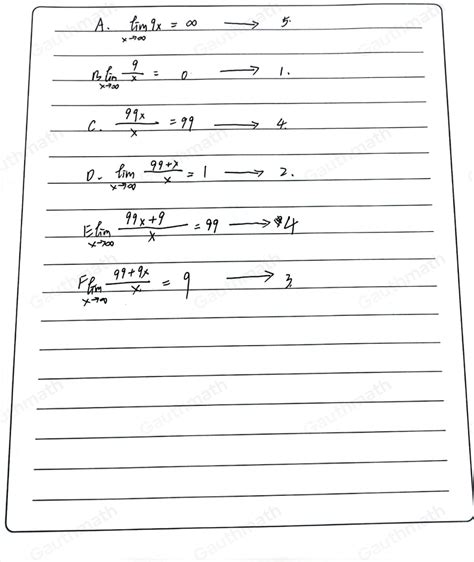 A. lim x→∞ 9x = ∞ → 5.
B lim x→∞ 9/x = 0 → 1.
C. 99x/x = 99 → 4.
D. lim x→∞ 99+x/x = 1 → 2.
E lim x→∞ 99x+9/x = 99 → 4
F lim x→∞ 99+9x/x = 9 → 3.
Gauthmath